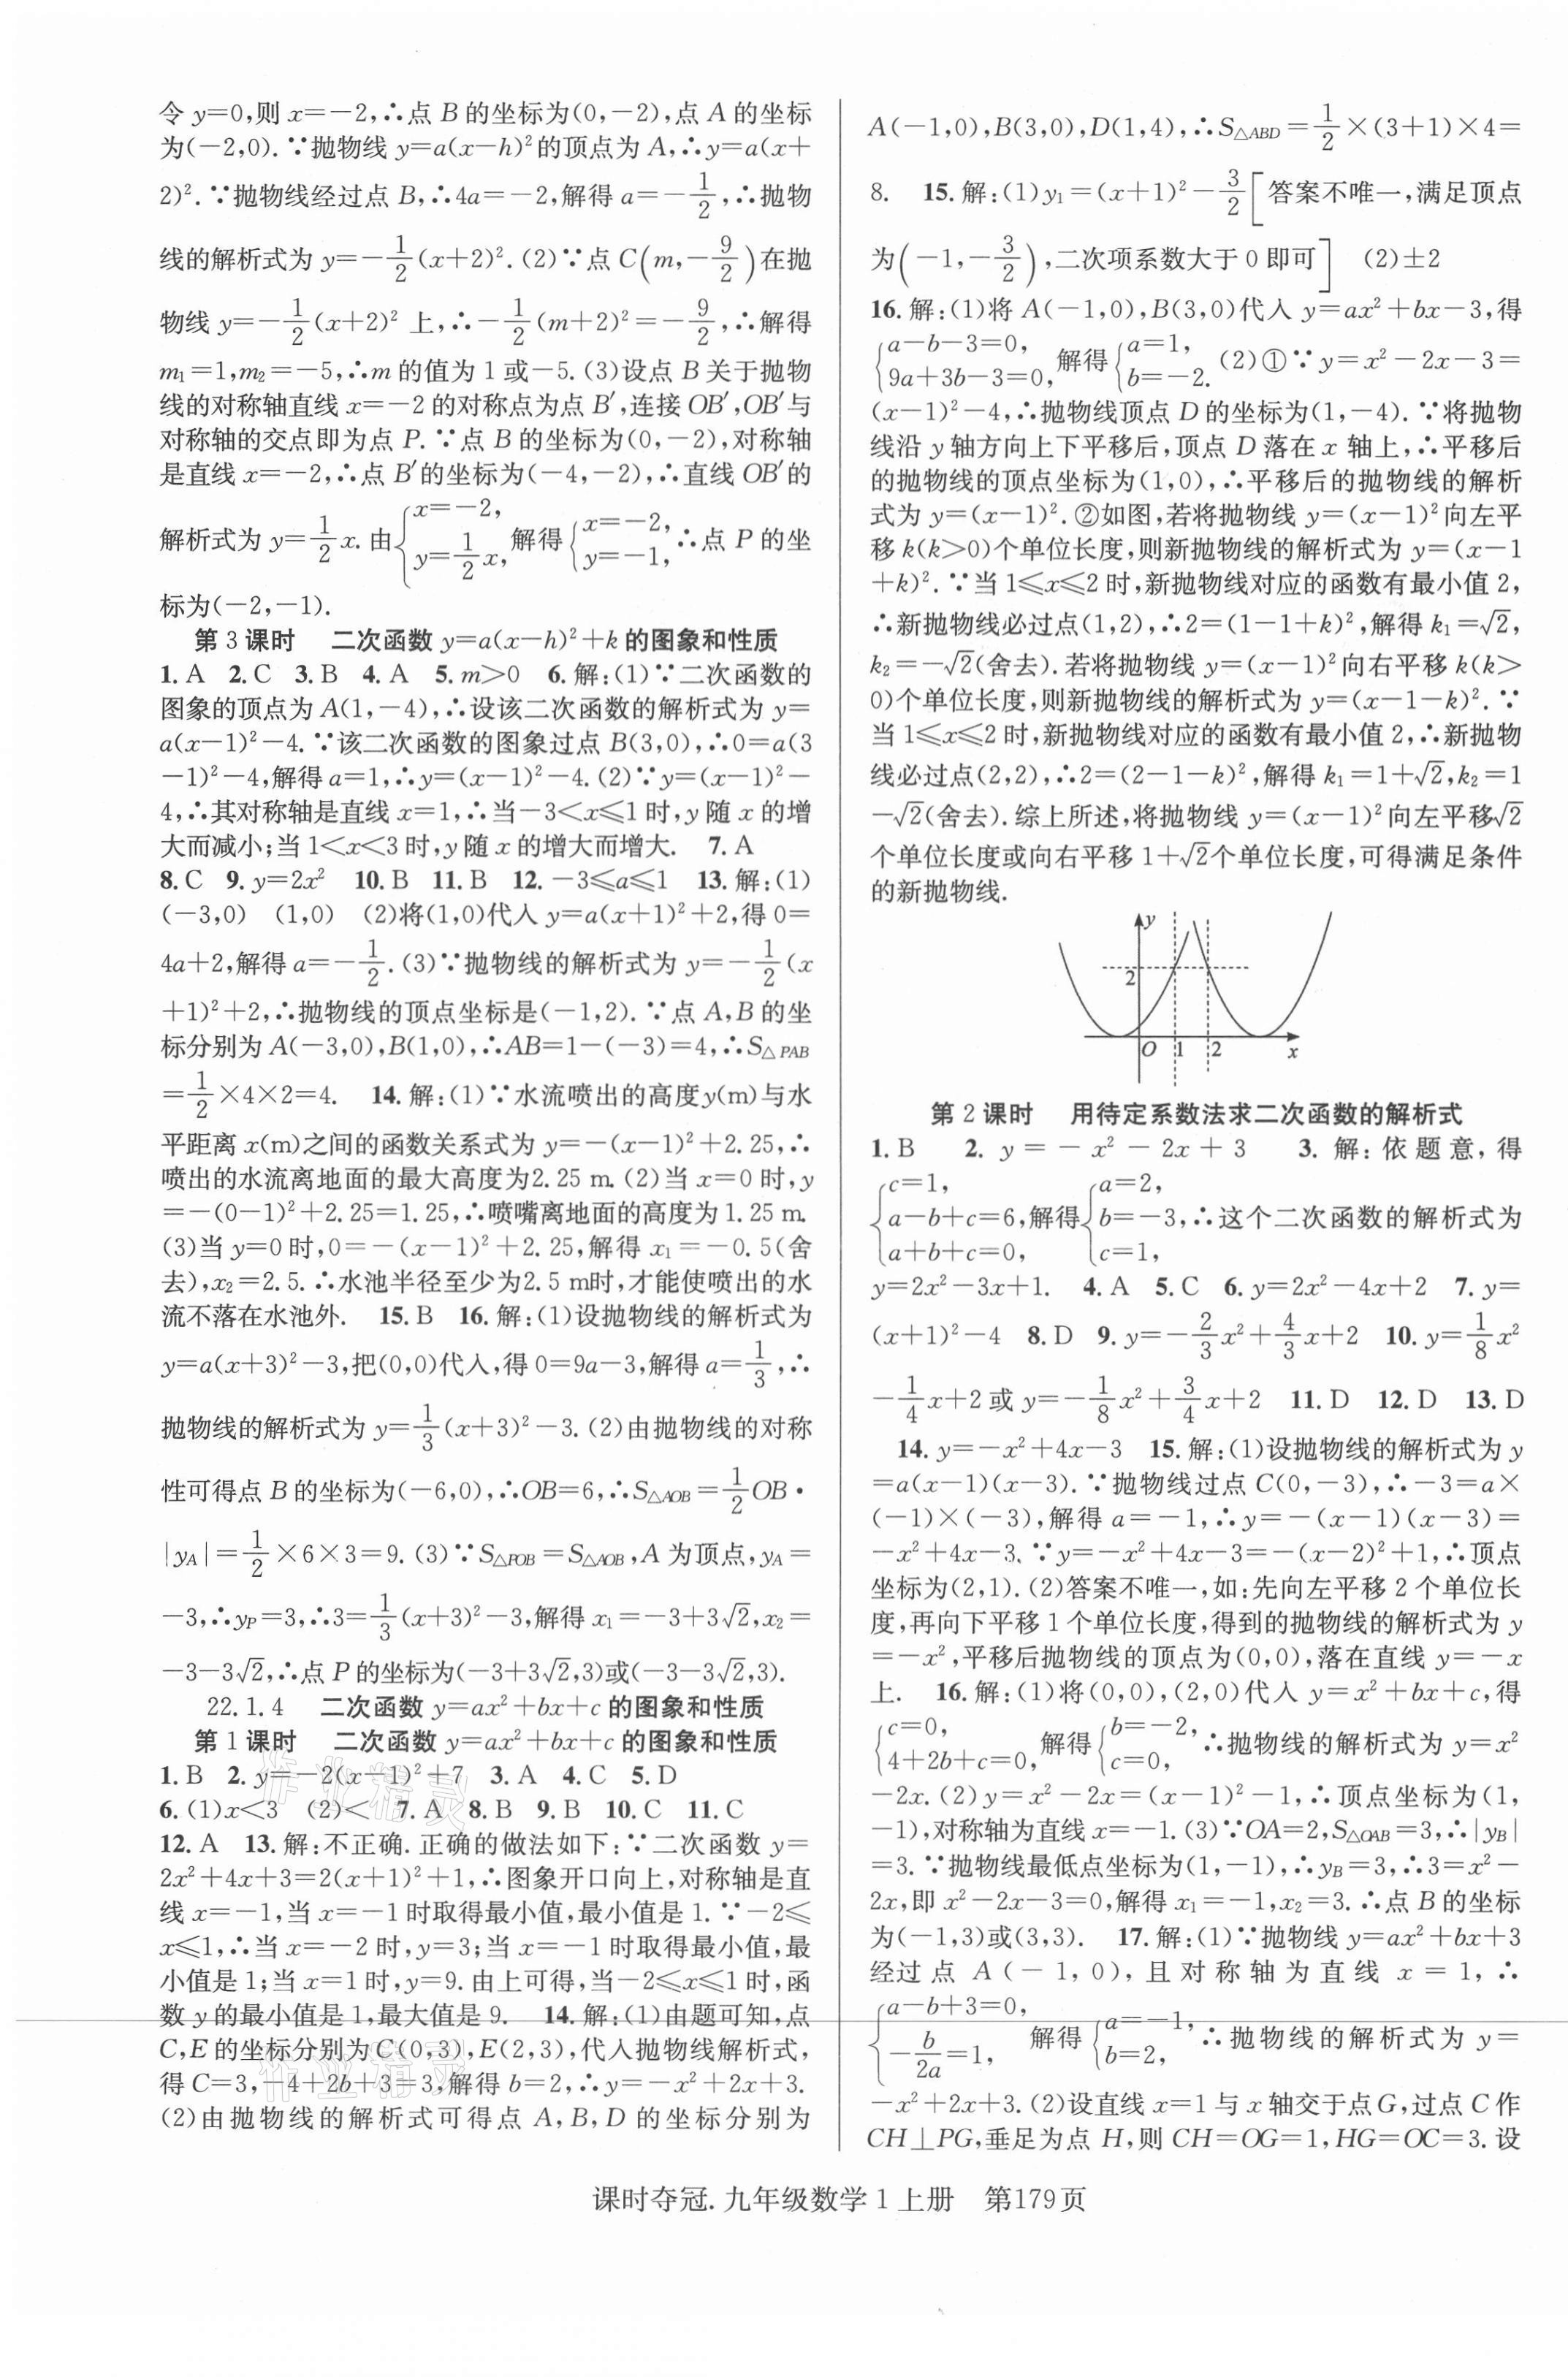 令 y=0,则 x=－2,∴点 B 的坐标为(0,－2),点 A 的坐标
为(－2,0).∵抛物线 y=a(x－h)²的顶点为 A,∴y=a(x＋
2)².∵抛物线经过点 B,∴4a=－2,解得 a=－1/2,∴抛物
线的解析式为 y=－1/2(x+2)².(2)∵点 C(m,－9/2)在抛
物线 y=－1/2(x+2)² 上,∴－1/2(m+2)²=－9/2,∴解得
m₁=1,m₂=－5,∴m 的值为 1 或－5.(3)设点 B 关于抛物
线的对称轴直线 x=－2 的对称点为点 B′,连接 OB′,OB′与
对称轴的交点即为点 P.∵点 B 的坐标为(0,－2),对称轴
是直线 x=－2,∴点 B′的坐标为(－4,－2),∴直线 OB′的
解析式为 y=1/2x.由{x=－2, y=1/2x, 解得{x=－2, y=－1, ∴点 P 的坐
标为(－2,－1).
第 3 课时 二次函数 y=a(x－h)²+k 的图象和性质
1.A 2.C 3.B 4.A 5.m>0 6.解:(1)∵二次函数的
图象的顶点为 A(1,－4),∴设该二次函数的解析式为 y=
a(x－1)²－4.∵该二次函数的图象过点 B(3,0),∴0=a(3
－1)²－4,解得 a=1,∴y=(x－1)²－4.(2)∵y=(x－1)²－
4,∴其对称轴是直线 x=1,∴当－3<x⩽1 时,y 随 x 的增
大而减小;当 1<x<3 时,y 随 x 的增大而增大. 7.A
8.C 9.y=2x² 10.B 11.B 12.－3⩽a⩽1 13.解:(1)
(－3,0) (1,0) (2)将(1,0)代入 y=a(x+1)²+2,得 0=
4a+2,解得 a=－1/2.(3)∵抛物线的解析式为 y=－1/2(x
+1)²+2,∴抛物线的顶点坐标是(－1,2).∵点 A,B 的坐
标分别为 A(－3,0),B(1,0),∴AB=1－(－3)=4,∴S△PAB
=1/2×4×2=4. 14.解:(1)∵水流喷出的高度y(m)与水
平距离 x(m)之间的函数关系式为 y=－(x－1)²+2.25,∴
喷出的水流离地面的最大高度为2.25 m.(2)当 x=0 时,y
=－(0－1)²+2.25=1.25,∴喷嘴离地面的高度为 1.25 m.
(3)当 y=0 时,0=－(x－1)²+2.25,解得 x₁=－0.5(舍
去),x₂=2.5.∴水池半径至少为2.5 m时,才能使喷出的水
流不落在水池外. 15.B 16.解:(1)设抛物线的解析式为
y=a(x+3)²－3,把(0,0)代入,得 0=9a－3,解得 a=1/3,∴
抛物线的解析式为 y=1/3(x+3)²－3.(2)由抛物线的对称
性可得点 B 的坐标为(－6,0),∴OB=6,∴S△AOB=1/2OB·
|yA|=1/2×6×3=9.(3)∵S△POB=S△AOB,A 为顶点,yA=
－3,∴yP=3,∴3=1/3(x+3)²－3,解得 x₁=－3+3√2,x₂=
－3－3√2,∴点 P 的坐标为(－3+3√2,3)或(－3－3√2,3).
22.1.4 二次函数 y=ax²+bx+c 的图象和性质
第 1 课时 二次函数 y=ax²+bx+c 的图象和性质
1.B 2.y=－2(x－1)²+7 3.A 4.C 5.D
6.(1)x<3 (2)< 7.A 8.B 9.B 10.C 11.C
12.A 13.解:不正确.正确的做法如下:∵二次函数 y=
2x²+4x+3=2(x+1)²+1,∴图象开口向上,对称轴是直
线 x=－1,当 x=－1 时取得最小值,最小值是 1.∵－2⩽
x⩽1,∴当 x=－2 时,y=3;当 x=－1 时取得最小值,最
小值是 1;当 x=1 时,y=9.由上可得,当－2⩽x⩽1 时,函
数 y 的最小值是 1,最大值是 9. 14.解:(1)由题可知,点
C,E 的坐标分别为 C(0,3),E(2,3),代入抛物线解析式,
得 C=3,－4+2b+3=3,解得 b=2,∴y=－x²+2x+3.
(2)由抛物线的解析式可得点 A,B,D 的坐标分别为
A(－1,0),B(3,0),D(1,4),∴S△ABD=1/2×(3+1)×4=
8. 15.解:(1)y₁=(x+1)²－3/2[答案不唯一,满足顶点
为(－1,－3/2),二次项系数大于 0 即可] (2)±2
16.解:(1)将 A(－1,0),B(3,0)代入 y=ax²+bx－3,得
{a－b－3=0, 9a+3b－3=0, 解得{a=1, b=－2. (2)①∵y=x²－2x－3=
(x－1)²－4,∴抛物线顶点 D 的坐标为(1,－4).∵将抛物
线沿 y 轴方向上下平移后,顶点 D 落在 x 轴上,∴平移后
的抛物线的顶点坐标为(1,0),∴平移后的抛物线的解析
式为 y=(x－1)².②如图,若将抛物线 y=(x－1)²向左平
移 k(k>0)个单位长度,则新抛物线的解析式为 y=(x－1
+k)².∵当 1⩽x⩽2 时,新抛物线对应的函数有最小值 2,
∴新抛物线必过点(1,2),∴2=(1－1+k)²,解得 k₁=√2,
k₂=－√2(舍去).若将抛物线 y=(x－1)²向右平移 k(k>
0)个单位长度,则新抛物线的解析式为 y=(x－1－k)².∵
当 1⩽x⩽2 时,新抛物线对应的函数有最小值 2,∴新抛物
线必过点(2,2),∴2=(2－1－k)²,解得 k₁=1+√2,k₂=1
－√2(舍去).综上所述,将抛物线 y=(x－1)²向左平移√2
个单位长度或向右平移 1+√2个单位长度,可得满足条件
的新抛物线.
y
2
O 1 2 x
第 2 课时 用待定系数法求二次函数的解析式
1.B 2.y=－x²－2x+3 3.解:依题意,得
{c=1, a－b+c=6, a+b+c=0, 解得{a=2, b=－3, c=1, ∴这个二次函数的解析式为
y=2x²－3x+1. 4.A 5.C 6.y=2x²－4x+2 7.y=
(x+1)²－4 8.D 9.y=－2/3x²+4/3x+2 10.y=1/8x²
－1/4x+2 或 y=－1/8x²+3/4x+2 11.D 12.D 13.D
14.y=－x²+4x－3 15.解:(1)设抛物线的解析式为 y
=a(x－1)(x－3).∵抛物线过点 C(0,－3),∴－3=a×
(－1)×(－3),解得 a=－1,∴y=－(x－1)(x－3)=
－x²+4x－3.∵y=－x²+4x－3=－(x－2)²+1,∴顶点
坐标为(2,1).(2)答案不唯一,如:先向左平移 2 个单位长
度,再向下平移 1 个单位长度,得到的抛物线的解析式为 y
=－x²,平移后抛物线的顶点为(0,0),落在直线 y=－x
上. 16.解:(1)将(0,0),(2,0)代入 y=x²+bx+c,得
{c=0, 4+2b+c=0, 解得{b=－2, c=0, ∴抛物线的解析式为 y=x²
－2x.(2)y=x²－2x=(x－1)²－1,∴顶点坐标为(1,
－1),对称轴为直线 x=－1.(3)∵OA=2,S△OAB=3,∴|yB|
=3.∵抛物线最低点坐标为(1,－1),∴yB=3,∴3=x²－
2x,即 x²－2x－3=0,解得 x₁=－1,x₂=3.∴点 B 的坐标
为(－1,3)或(3,3). 17.解:(1)∵抛物线 y=ax²+bx+3
经过点 A(－1,0),且对称轴为直线 x=1,∴
{a－b+3=0, －b/2a=1, 解得{a=－1, b=2, ∴抛物线的解析式为 y=
－x²+2x+3.(2)设直线 x=1 与 x 轴交于点 G,过点 C 作
CH⊥PG,垂足为点 H,则 CH=OG=1,HG=OC=3.设
课时夺冠.九年级数学 1 上册 第179页
作业精灵
作业精灵